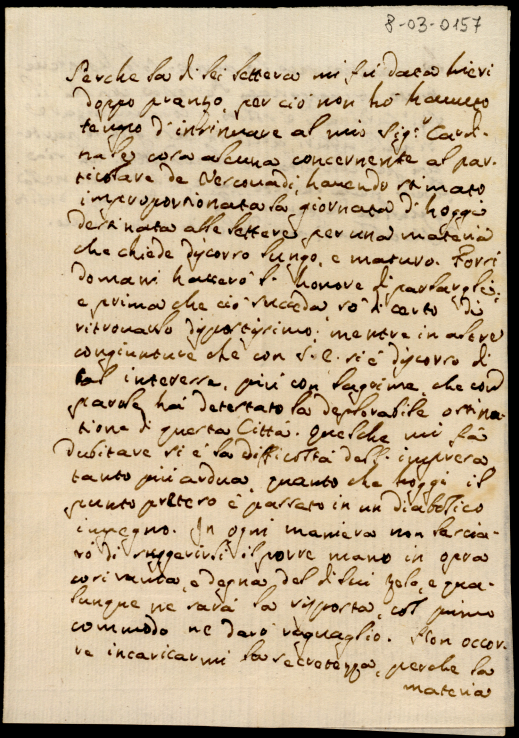 8-03-0157
Perche la di lei lettera mi fù data hieri
doppo pranzo, perciò non hò havuto
tempo d'insinuare al mio Sig.r Cardi-
nale cosa alcuna concernente al par-
ticolare de Vescovadi, havendo stimato
improportionata la giornata d'hoggi
destinata alle lettere per una materia
che chiede discorso lungo, e maturo. Forsi
domani haverò l'honore di parlarglie,
e prima che ciò succeda sò di certo di
ritrovarlo dispostissimo; mentre in altre
congiunture che con S. E. si è discorso di
tal interesse, più con lagrime, che con
parole hà detestato la deplorabile ostina-
tione di questa Città. Quelche mi fà
dubitare si è la difficoltà dell'impresa
tanto più ardua, quanto che hoggi il
punto preteso è passato in un diabolico
impegno. In ogni maniera non lascia-
rò di suggerirli il porre mano in opra
così santa, e degna del di lui zelo, e qua-
lunque ne sarà la risposta, col primo
commodo ne darò raguaglio. Non occor-
re incaricarmi la secretezza, perche la
materia